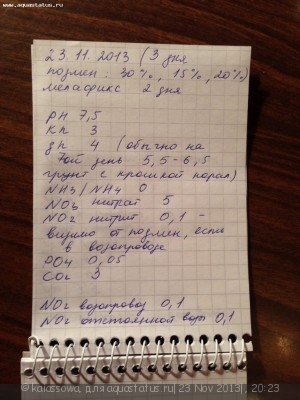 www.aquastatus.ru
23.11.2013 (3 дня
подмен: 30%, 15%, 20%)
мелафикс 2 дня
pH 7,5
Kh 3
gh 4 (обычно на
7ой день 5,5-6,5
грунт с крошкой корал)
NH3/NH4 0
NO3 нитрат 5
NO2 нитрит 0,1 -
видимо от подмен, если
в водопроводе
PO4 0,05
CO2 3
NO2 водопровод 0,1
NO2 отстоянной воды 0,1
© kalassowa, для aquastatus.ru| 23 Nov 2013|, 20:23